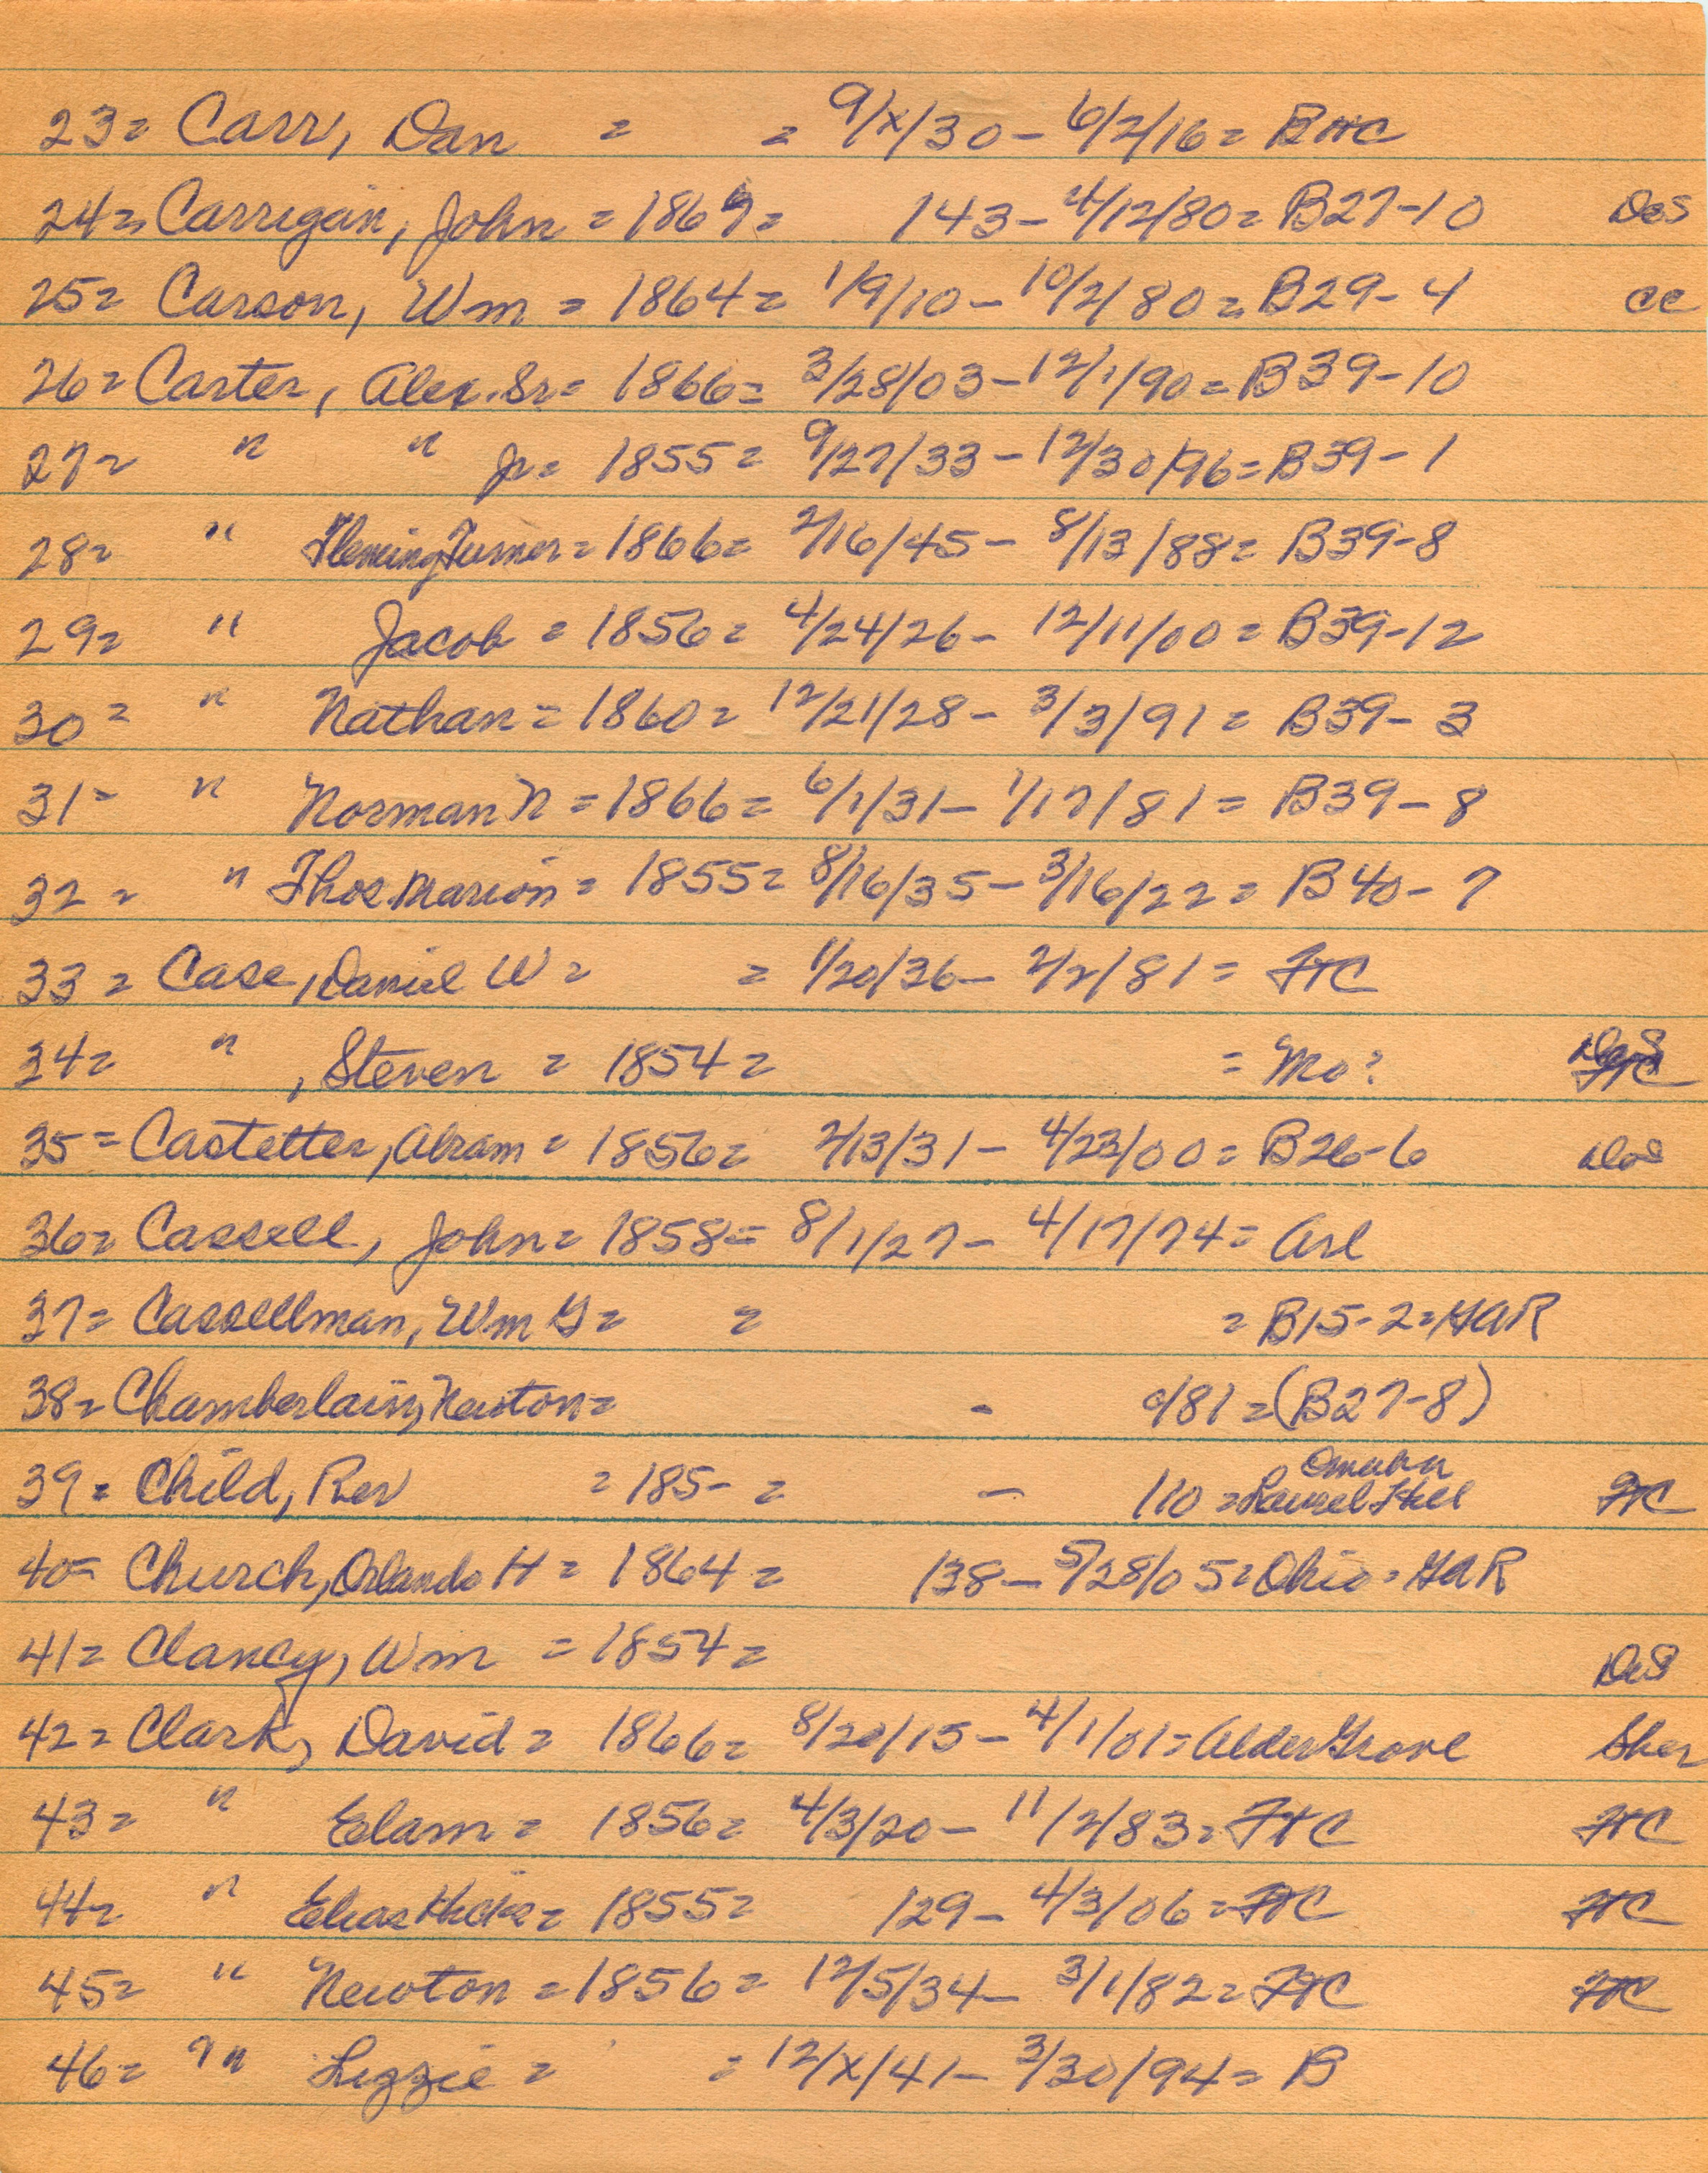 23= Carr, Dan = = 9/x/30 - 6/2/16 = BHC
24= Carrigan, John = 1869= 143 - 4/12/80= B27-10 DeS
25= Carson, Wm = 1864= 1/9/10 - 10/2/80 = B29-4 CC
26= Carter, Alex. Sr= 1866= 3/28/03 - 12/1/90 = B39-10
27= " " Jr= 1855= 9/27/33 - 12/30/96= B39-1
28= " Fleming Turner = 1866= 2/16/45 - 8/13/88= B39-8
29= " Jacob = 1856= 4/24/26 - 12/11/00 = B39-12
30= " Nathan = 1860= 12/21/28 - 3/3/91 = B39-3
31= " Norman N = 1866= 6/1/31 - 1/17/81 = B39-8
32= " Thos Marion = 1855= 8/16/35 - 3/16/22 = B40-7
33= Case, Daniel W = = 1/20/36 - 2/2/81 = FtC
34= " , Steven = 1854 = = Mo?
35= Castetter, Abram = 1856= 2/13/31 - 4/23/00 = B26-6 DeS
36= Cassell, John= 1858= 8/1/27 - 4/17/74= Arl
37= Cassellman, Wm G = = = B15-2= GAR
38= Chamberlain, Newton= - /81 = (B27-8)
39= Child, Rev = 185- = - 110 = Omaha Laurel Hill FtC
40= Church, Orlando H = 1864 = 138 - 5/28/05= Ohio= GAR
41= Clancy, Wm = 1854 = DeS
42= Clark, David = 1866= 8/20/15 - 4/1/01= Alder Grove Sher
43= " Elam = 1856= 4/3/20 - 11/2/83= FtC FtC
44= " Elias Hicks= 1855= 129 - 4/3/06 = FtC FtC
45= " Newton = 1856= 12/5/34 - 3/1/82= FtC FtC
46= " " Lizzie = = 12/x/41 - 3/30/94= B